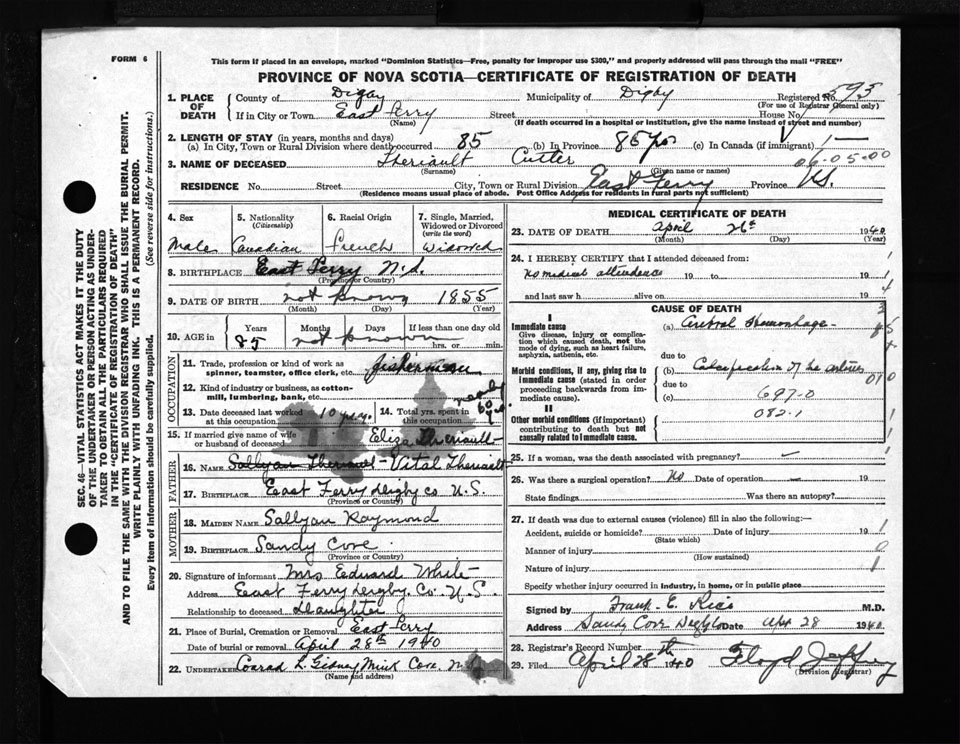 FORM 6
This form if placed in an envelope, marked "Dominion Statistics—Free, penalty for improper use $300," and properly addressed will pass through the mail "FREE"
PROVINCE OF NOVA SCOTIA—CERTIFICATE OF REGISTRATION OF DEATH
SEC. 46—VITAL STATISTICS ACT MAKES IT THE DUTY
OF THE UNDERTAKER OR PERSON ACTING AS UNDER-
TAKER TO OBTAIN ALL THE PARTICULARS REQUIRED
IN THE "CERTIFICATE OF REGISTRATION OF DEATH"
AND TO FILE THE SAME WITH THE DIVISION REGISTRAR WHO SHALL ISSUE THE BURIAL PERMIT.
WRITE PLAINLY WITH UNFADING INK. THIS IS A PERMANENT RECORD.
Every item of information should be carefully supplied. (See reverse side for instructions.)
1. PLACE OF DEATH County of Digby Municipality of Digby Registered No. 593
(For use of Registrar General only)
If in City or Town East Ferry Street House No.
(Name) (If death occurred in a hospital or institution, give the name instead of street and number)
2. LENGTH OF STAY (in years, months and days)
(a) In City, Town or Rural Division where death occurred 85 (b) In Province 85 yrs (c) In Canada (if immigrant) —
06.05.00
3. NAME OF DECEASED Theriault Cutler
(Surname) (Given name or names)
RESIDENCE No. Street City, Town or Rural Division East Ferry Province N.S.
(Residence means usual place of abode. Post Office Address for residents in rural parts not sufficient)
4. Sex 5. Nationality (Citizenship) 6. Racial Origin 7. Single, Married, Widowed or Divorced (write the word)
Male Canadian French Widowed
8. BIRTHPLACE East Ferry N.S.
(Province or Country)
9. DATE OF BIRTH not known 1855
(Month) (Day) (Year)
10. AGE in Years Months Days If less than one day old
85 not known hrs. or min.
OCCUPATION
11. Trade, profession or kind of work as spinner, teamster, office clerk, etc. fisherman
12. Kind of industry or business, as cotton-mill, lumbering, bank, etc.
13. Date deceased last worked at this occupation 10 yrs. 14. Total yrs. spent in this occupation 60
15. If married give name of wife or husband of deceased Eliza Theriault
FATHER
16. NAME Sallyan Theriault - Vital Theriault
17. BIRTHPLACE East Ferry Digby co N.S.
(Province or Country)
MOTHER
18. MAIDEN NAME Sallyan Raymond
19. BIRTHPLACE Sandy Cove
(Province or Country)
20. Signature of informant Mrs Edward White
Address East Ferry Digby Co. N.S.
Relationship to deceased Daughter
21. Place of Burial, Cremation or Removal East Ferry
Date of burial or removal April 28th 1940
22. UNDERTAKER Conrad L. Gidney, Mink Cove N.S.
(Name and address)
MEDICAL CERTIFICATE OF DEATH
23. DATE OF DEATH April 26th 1940
(Month) (Day) (Year)
24. I HEREBY CERTIFY that I attended deceased from:
No medical attendance 19 to 19
and last saw h alive on 19
CAUSE OF DEATH
I
Immediate cause
Give disease, injury or complication which caused death, not the mode of dying, such as heart failure, asphyxia, asthenia, etc.
(a) Cerebral Hemorrhage
due to
Morbid conditions, if any, giving rise to immediate cause (stated in order proceeding backwards from immediate cause).
(b) Calcification of the arteries
due to
(c) 697.0
082.1
II
Other morbid conditions (if important) contributing to death but not causally related to immediate cause.
25. If a woman, was the death associated with pregnancy? —
26. Was there a surgical operation? No Date of operation — 19
State findings Was there an autopsy?
27. If death was due to external causes (violence) fill in also the following:—
Accident, suicide or homicide? Date of injury 19
(State which)
Manner of injury
(How sustained)
Nature of injury
Specify whether injury occurred in industry, in home, or in public place
Signed by Frank E. Rice M.D.
Address Sandy Cove Digby Co Date Apr 28 1940
28. Registrar's Record Number
29. Filed April 28th 1940 Floyd
(Division Registrar)